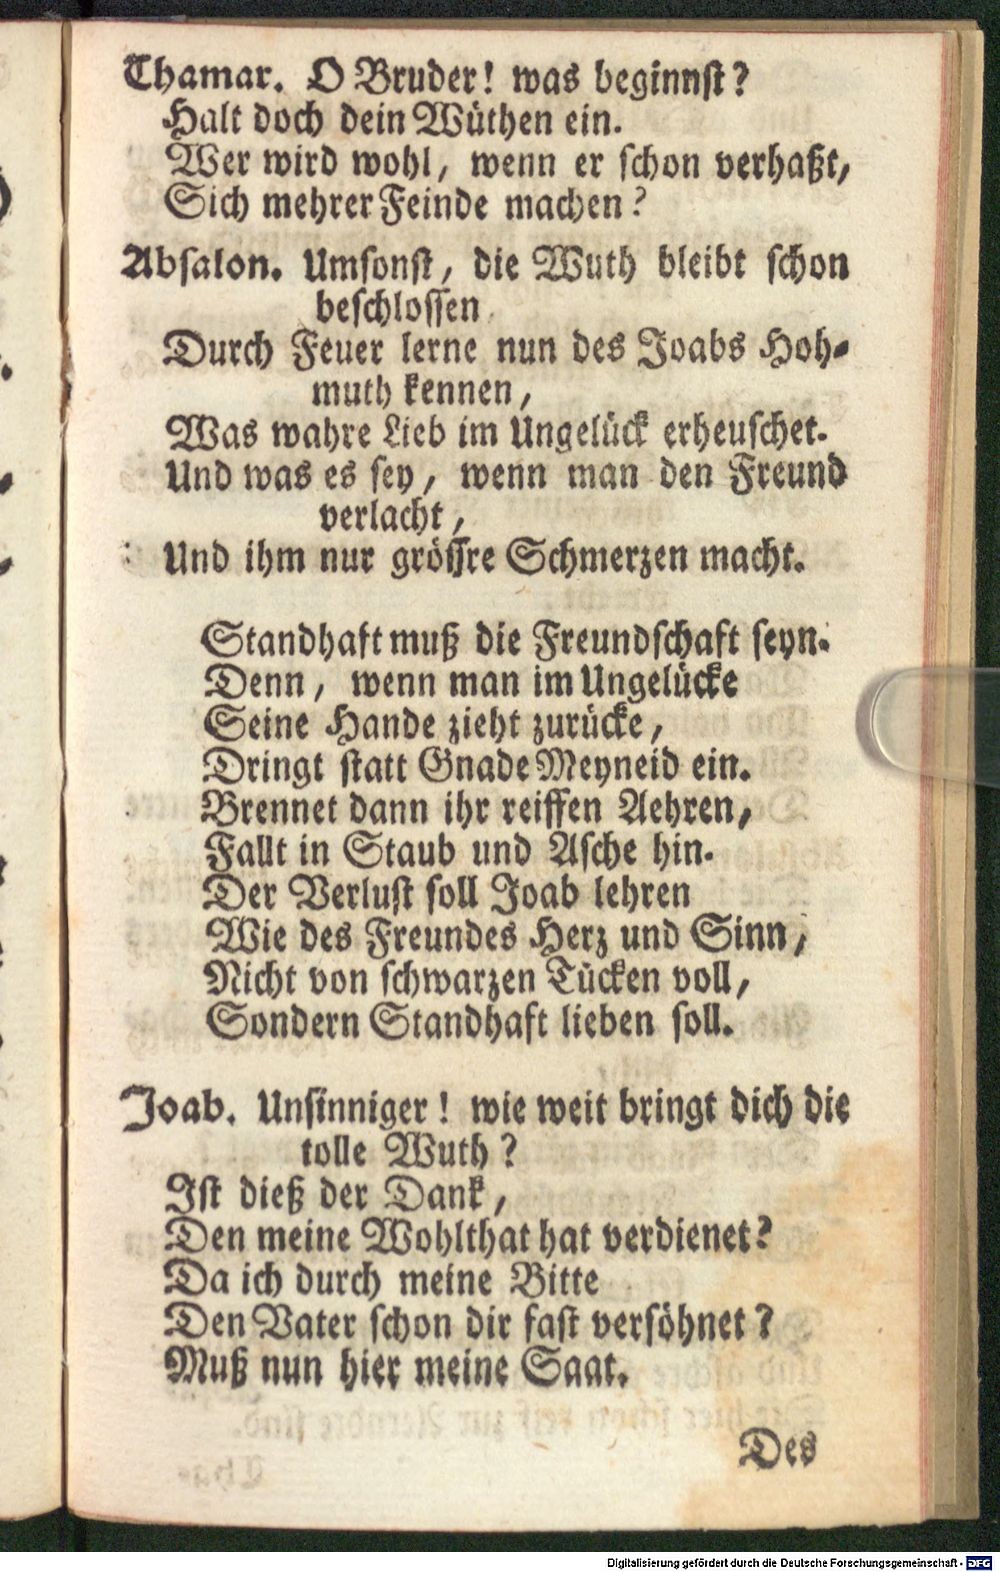 Thamar. O Bruder! was beginnst?
Halt doch dein Wüthen ein.
Wer wird wohl, wenn er schon verhaßt,
Sich mehrer Feinde machen?
Absalon. Umsonst, die Wuth bleibt schon
beschlossen
Durch Feuer lerne nun des Joabs Hoh-
muth kennen,
Was wahre Lieb im Ungelück erheuschet.
Und was es sey, wenn man den Freund
verlacht,
Und ihm nur grössre Schmerzen macht.
Standhaft muß die Freundschaft seyn.
Denn, wenn man im Ungelücke
Seine Hande zieht zurücke,
Dringt statt Gnade Meyneid ein.
Brennet dann ihr reiffen Aehren,
Fallt in Staub und Asche hin.
Der Verlust soll Joab lehren
Wie des Freundes Herz und Sinn,
Nicht von schwarzen Tücken voll,
Sondern Standhaft lieben soll.
Joab. Unsinniger! wie weit bringt dich die
tolle Wuth?
Ist dieß der Dank,
Den meine Wohlthat hat verdienet?
Da ich durch meine Bitte
Den Vater schon dir fast versöhnet?
Muß nun hier meine Saat.
Des
Digitalisierung gefördert durch die Deutsche Forschungsgemeinschaft - DFG